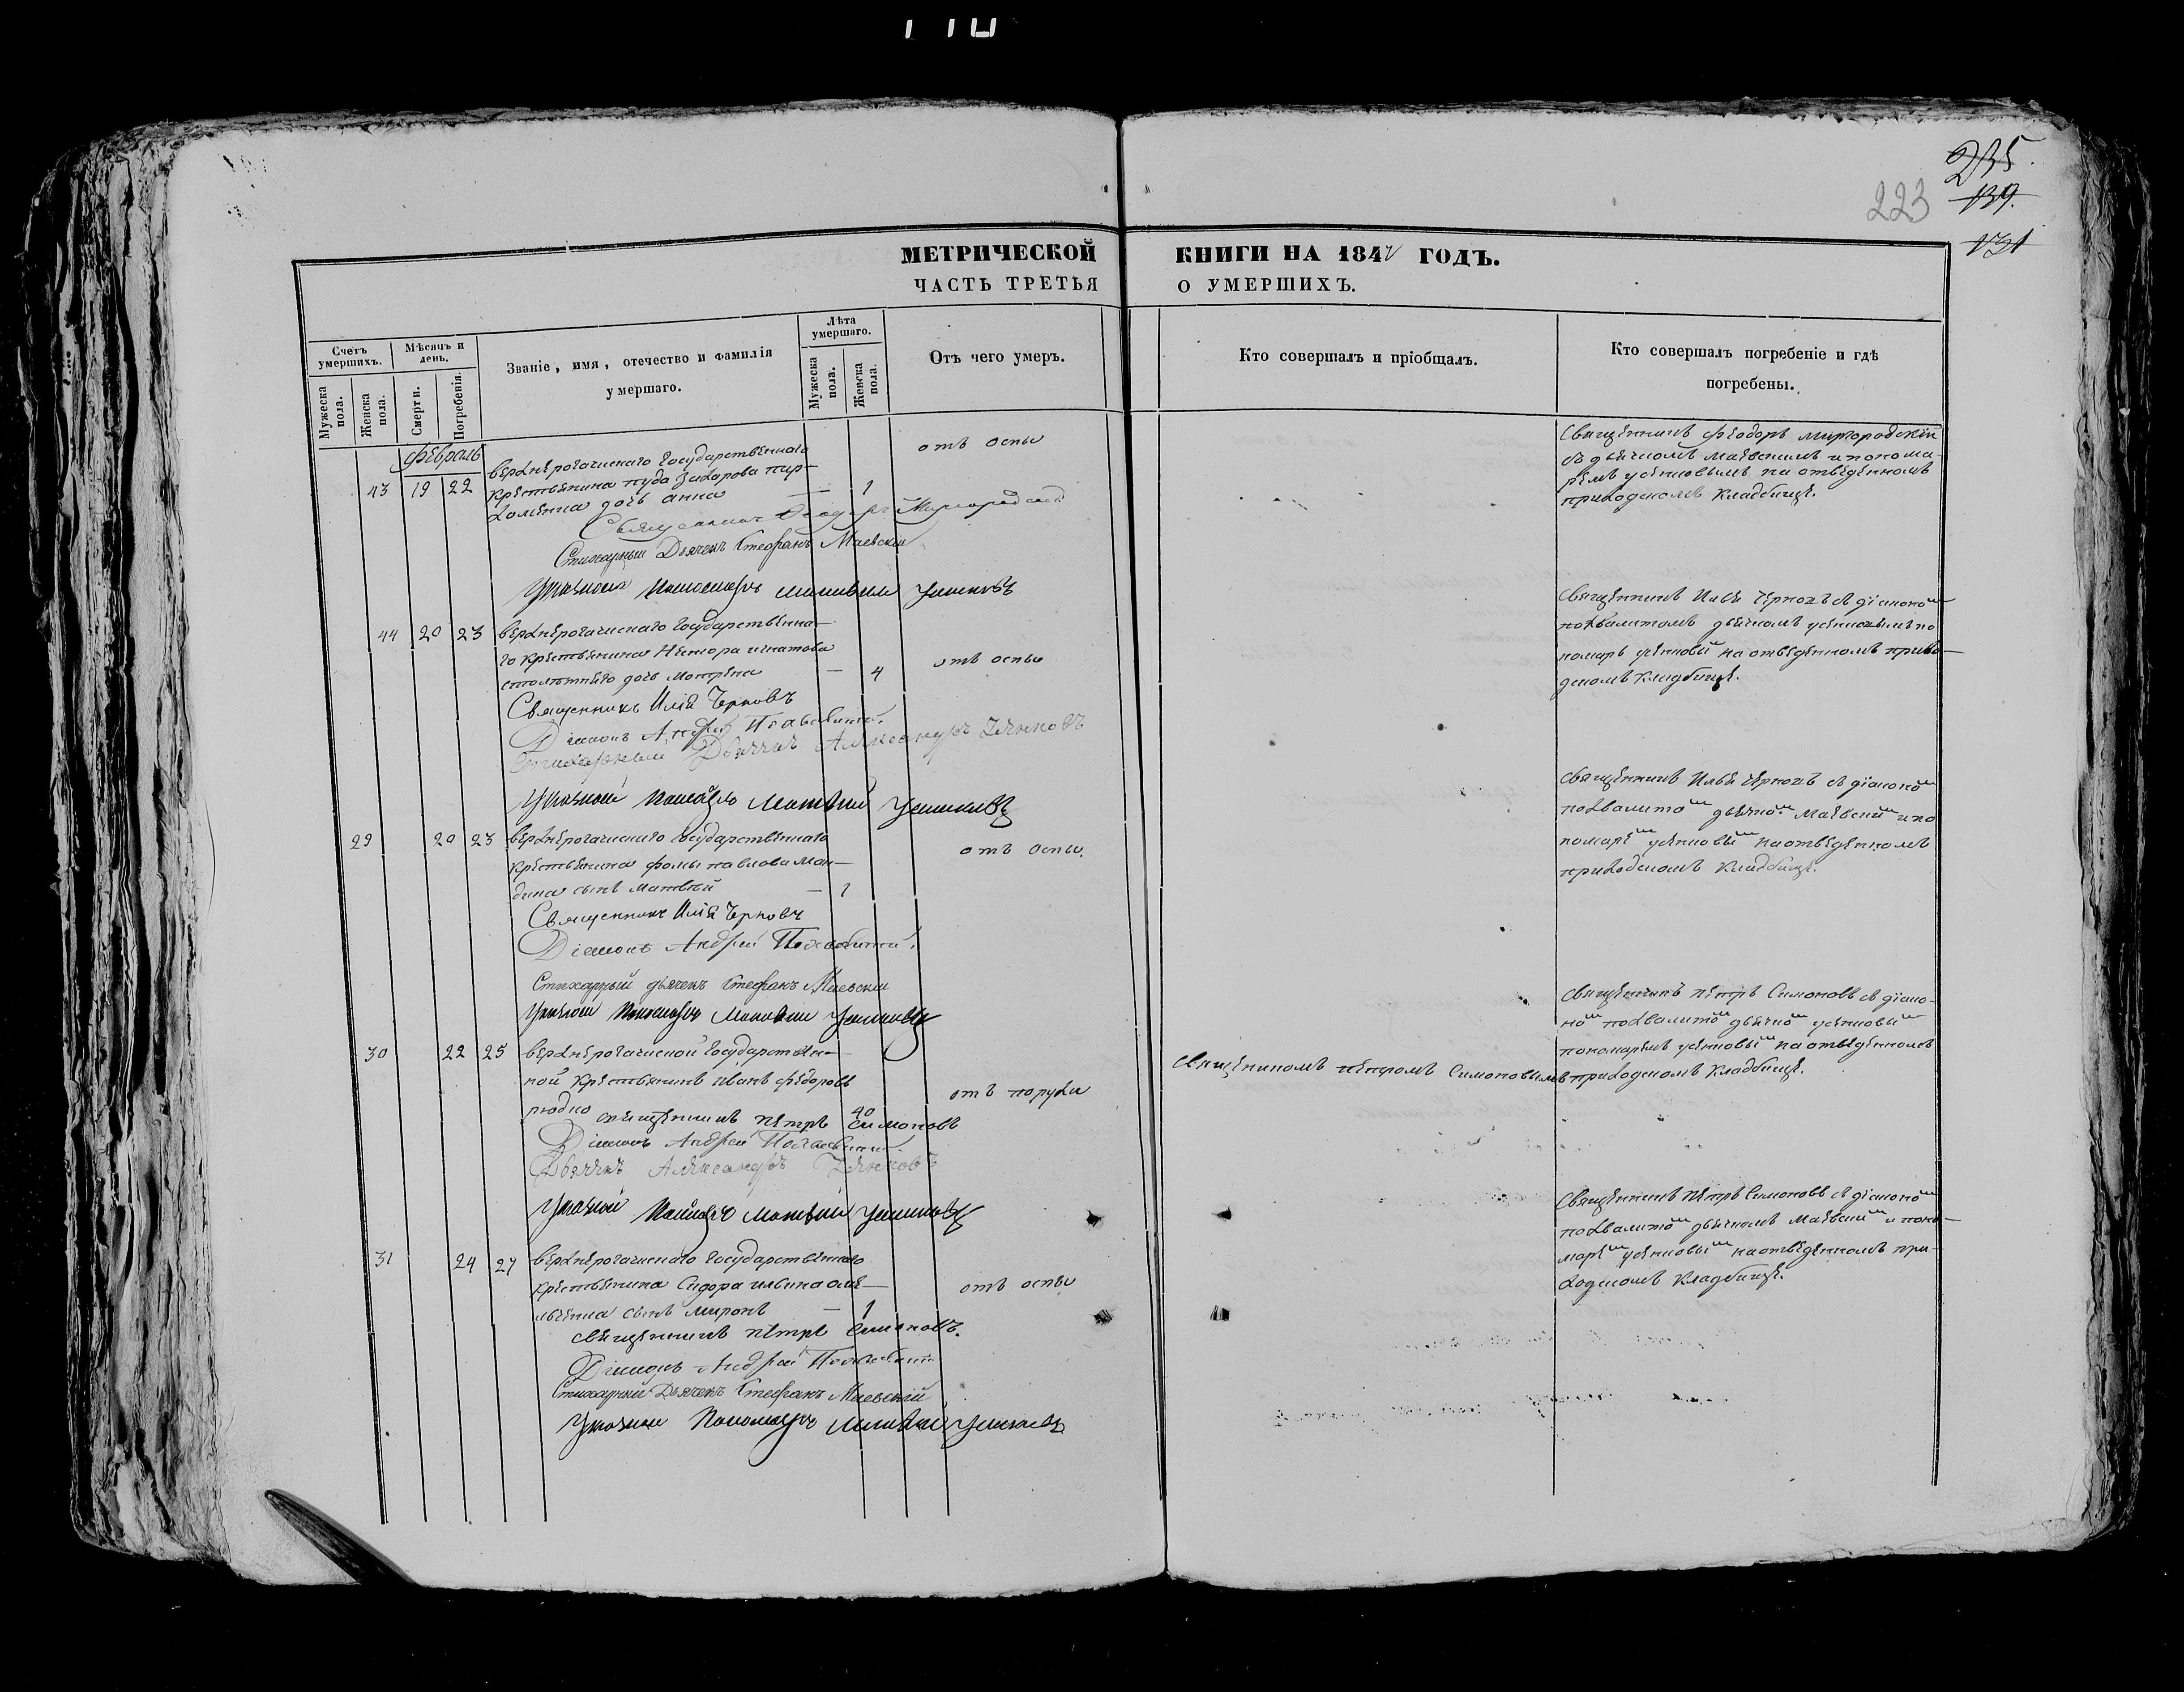 235.
223
139.
131
МЕТРИЧЕСКОЙ КНИГИ НА 184 ГОДЪ.
ЧАСТЬ ТРЕТЬЯ О УМЕРШИХЪ.
Счетъ умершихъ.
Мужеска пола.
Женска пола.
Мѣсяцъ и день.
Смерти.
Погребенія.
Званіе, имя, отечество и фамилія
умершаго.
Лѣта умершаго.
Мужеска пола.
Женска пола.
Отъ чего умеръ.
Кто совершалъ и пріобщалъ.
Кто совершалъ погребеніе и гдѣ
погребены.
февраль
43 19 22
верхнерогачискаго Государственнаго
крестьянина пуда Захарова пар-
хоменка дочь анна — 1
отъ оспы
Священникъ Феодоръ Миргородскій
Стихарный Дьячекъ Стефанъ Маевскій
Указной Пономарь Матвѣй Усенковъ
Священникъ Феодоръ миргородскій
съ дьячкомъ маевскимъ и понома-
ремъ усенковымъ на отведенномъ
приходскомъ кладбищѣ.
44 20 23
верхнерогачискаго Государственна-
го крестьянина Нестора игнатова
столѣтнего дочь Мотрена — 4
отъ оспы
Священникъ Илія Черновъ
Діаконъ Андрей Похвалитый.
Стихарный Дьячекъ Александръ Усенковъ
Указной Пономарь Матвѣй Усенковъ
Священникъ Илья Черновъ съ діакономъ
похвалитомъ дьячкомъ усенковымъ по
номарь усенковый на отведенномъ прихо-
дскомъ кладбищѣ.
29 20 23
верхнерогачискаго Государственнаго
крестьянина фомы павлова Ман-
дича сынъ Матвей — 1
отъ оспы.
Священникъ Илія Черновъ
Діаконъ Андрей Похвалитый.
Стихарный дьячекъ Стефанъ Маевскій
Указной Пономарь Матвѣй Усенковъ
Священникъ Илья Черновъ съ діакономъ
похвалитомъ дьячкомъ Маевскимъ и по
номаремъ усенковымъ на отведенномъ
приходскомъ кладбищѣ.
30 22 25
верхнерогачиской Государствен-
ной крестьянинъ иванъ федоровъ
рюдко 40
отъ порухи
Священникъ петръ Симоновъ
Діаконъ Андрей Похвалитый.
Дьячекъ Александръ Усенковъ
Указной Пономарь Матвѣй Усенковъ
Священикомъ петромъ Симоновымъ
Священникъ петръ Симоновъ съ діако-
номъ похвалитомъ дьячкомъ усенковымъ
пономаремъ усенковымъ на отведенномъ
приходскомъ кладбищѣ.
31 24 27
верхнерогачискаго Государственнаго
крестьянина Сидора ильина оме-
льченка сынъ миронъ — 1
отъ оспы
Священникъ петръ Симоновъ.
Діаконъ Андрей Похвалитый
Стихарный Дьячекъ Стефанъ Маевскій
Указной Пономарь Матвѣй Усенковъ
Священникъ петръ Симоновъ съ діакономъ
похвалитомъ дьячкомъ Маевскимъ и поно-
маремъ усенковымъ на отведенномъ при-
ходскомъ кладбищѣ.